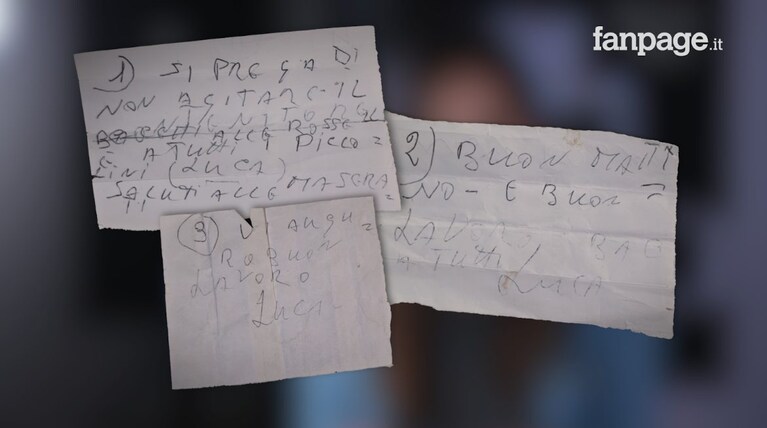 fanpage.it
1) SI PREGA DI
NON AGITARE IL
ALLE ROSSE
E A TUTTI I PICCO=
LINI (LUCA)
SALUTI ALLE MASCRA=
2) BUON MATTI
NO - E BUON =
LAVORO
A TUTTI /
LUCA
3) VI AUGU=
RO BUON
LAVORO
LUCA-